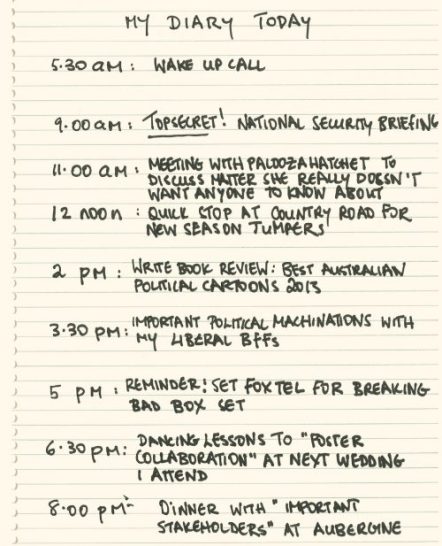 MY DIARY TODAY
5.30 am: WAKE UP CALL
9.00 am: TOPSECRET! NATIONAL SECURITY BRIEFING
11.00 am: MEETING WITH PALOOZAHATCHET TO
DISCUSS MATTER SHE REALLY DOESN'T
WANT ANYONE TO KNOW ABOUT
12 noon: QUICK STOP AT COUNTRY ROAD FOR
NEW SEASON JUMPERS
2 pm: WRITE BOOK REVIEW: BEST AUSTRALIAN
POLITICAL CARTOONS 2013
3.30 pm: IMPORTANT POLITICAL MACHINATIONS WITH
MY LIBERAL BFFs
5 pm: REMINDER! SET FOXTEL FOR BREAKING
BAD BOX SET
6.30 pm: DANCING LESSONS TO "FOSTER
COLLABORATION" AT NEXT WEDDING
I ATTEND
8.00 pm- DINNER WITH "IMPORTANT
STAKEHOLDERS" AT AUBERGINE